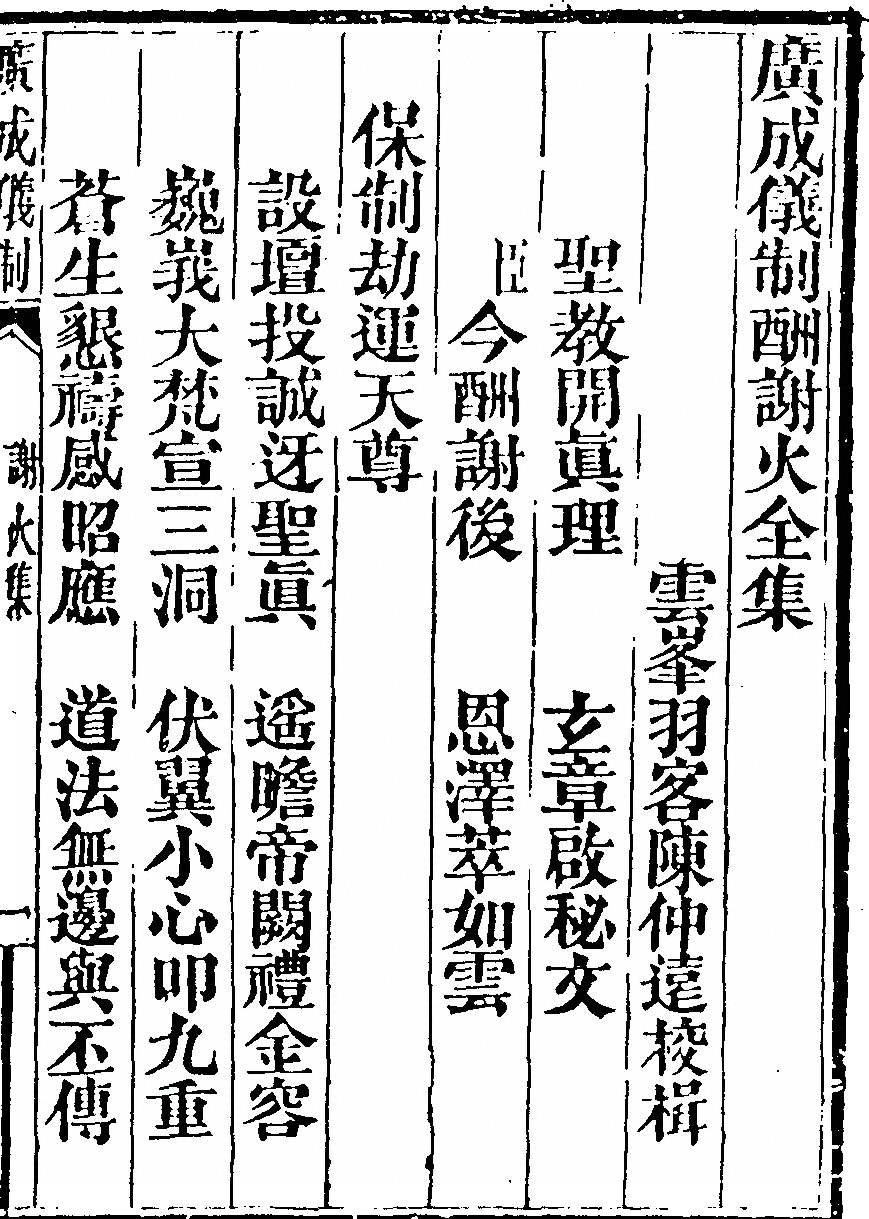 廣成儀制酬謝火全集
雲峯羽客陳仲遠校楫
聖教開眞理 玄章啟秘文
臣今酬謝後 恩澤萃如雲
保制劫運天尊
設壇投誠迓聖眞 遥瞻帝闕禮金容
巍峩大梵宣三洞 伏翼小心叩九重
蒼生懇禱感昭應 道法無邊與不傳
廣成儀制 謝火集 一